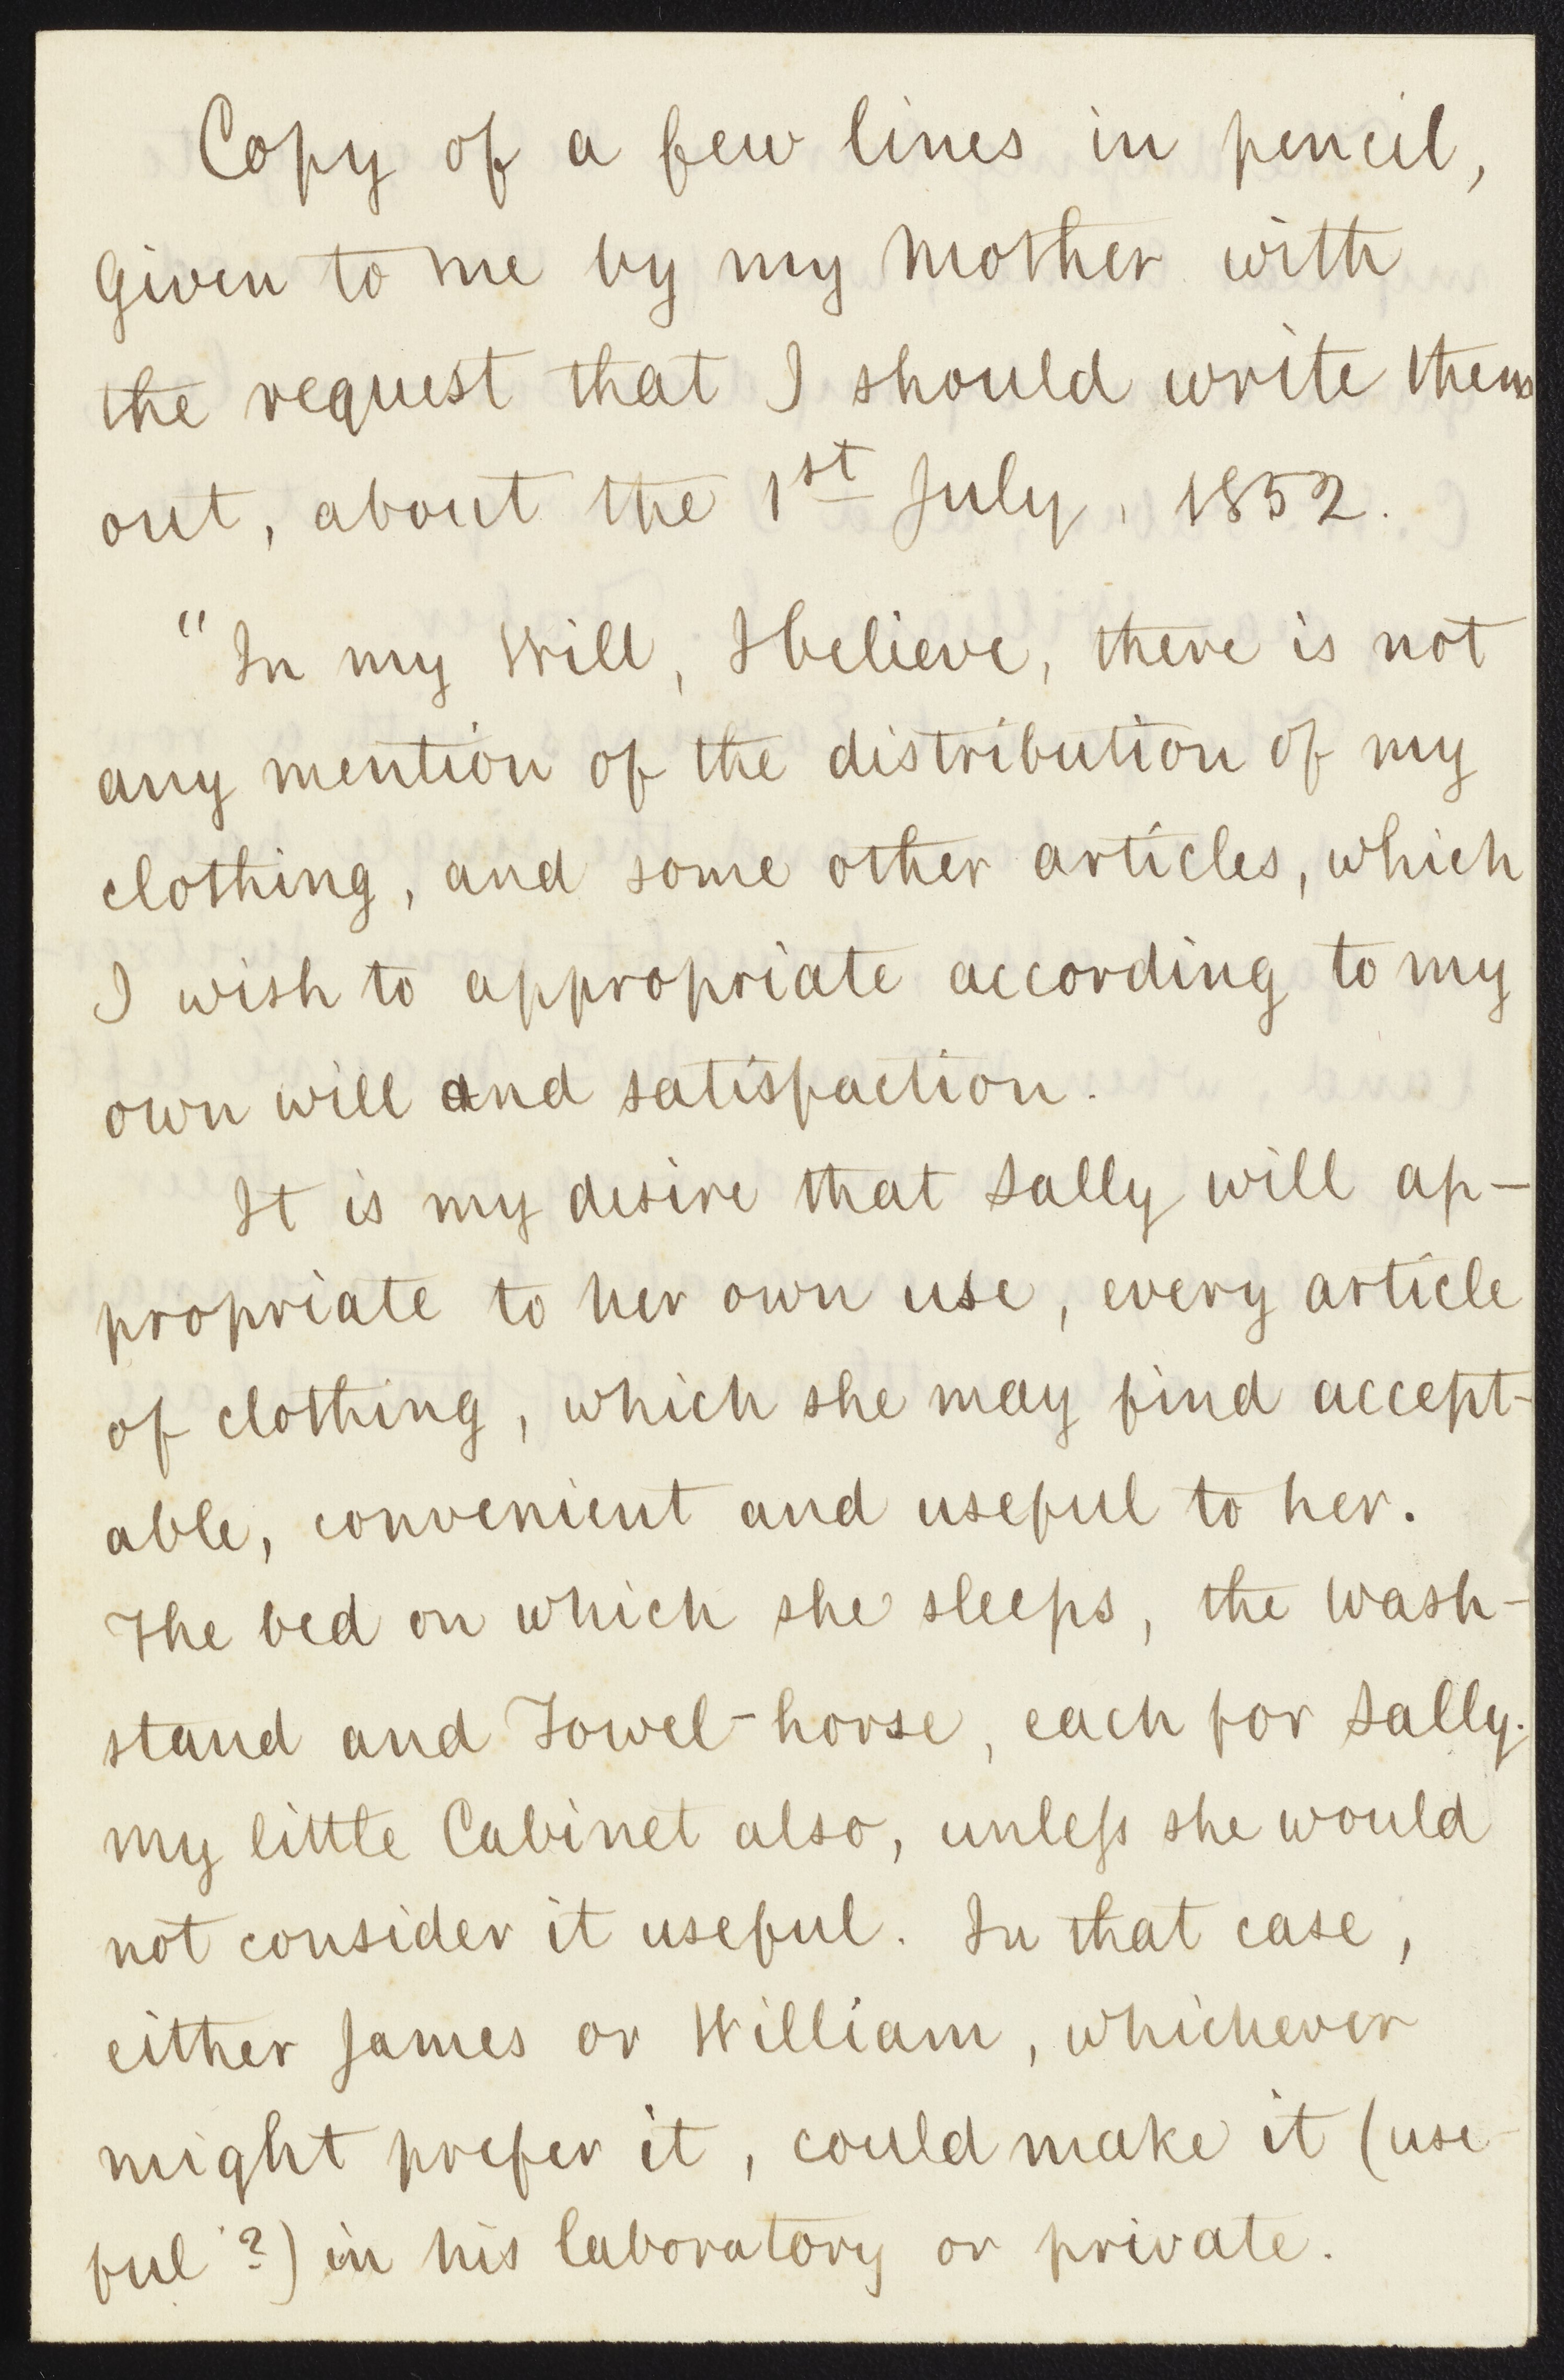 Copy of a few lines in pencil,
given to me by my Mother with
the request that I should write them
out, about the 1st July, 1852.
"In my Will, I believe, there is not
any mention of the distribution of my
clothing, and some other articles, which
I wish to appropriate according to my
own will and satisfaction.
It is my desire that Sally will ap-
propriate to her own use, every article
of clothing, which she may find accept-
able, convenient and useful to her.
The bed on which she sleeps, the Wash-
stand and Towel-horse, each for Sally.
My little Cabinet also, unless she would
not consider it useful. In that case,
either James or William, whichever
might prefer it, could make it (use-
ful?) in his laboratory or private.